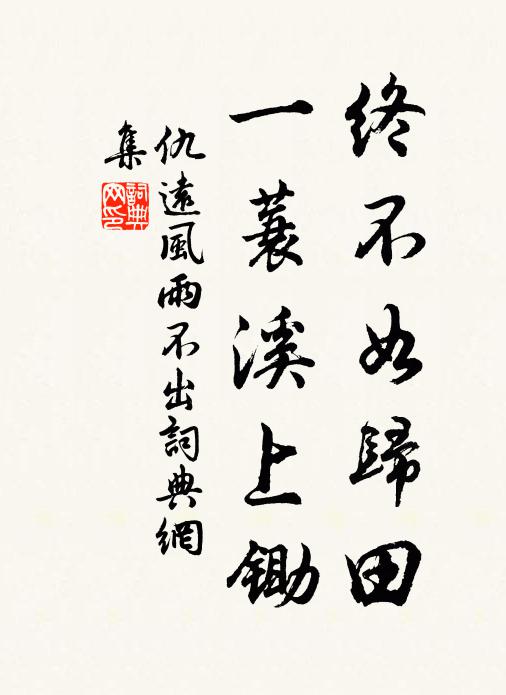 終不如歸田
一蓑溪上鋤
仇遠風雨不出詞典網
集
詞典
网印